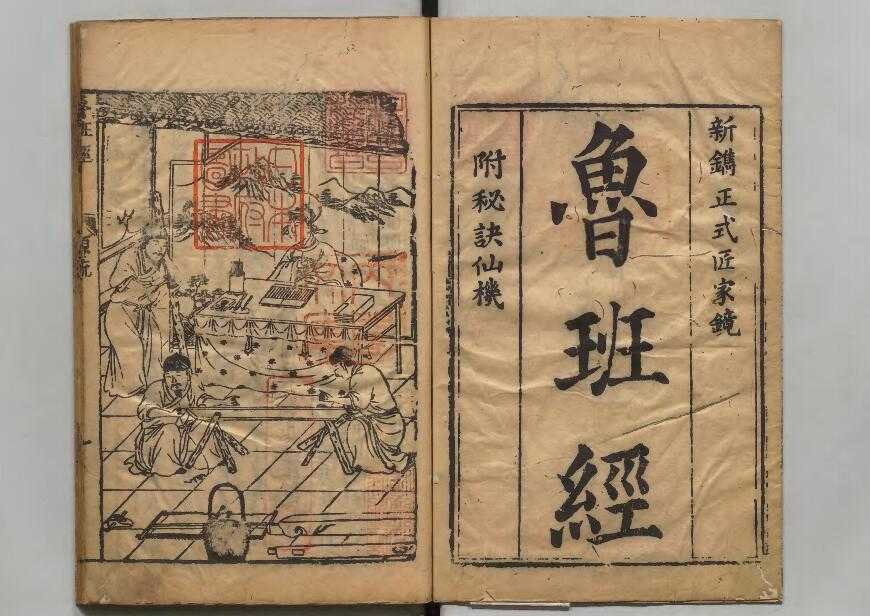 新鐫正式匠家鏡
魯班經
附秘訣仙機
魯班經